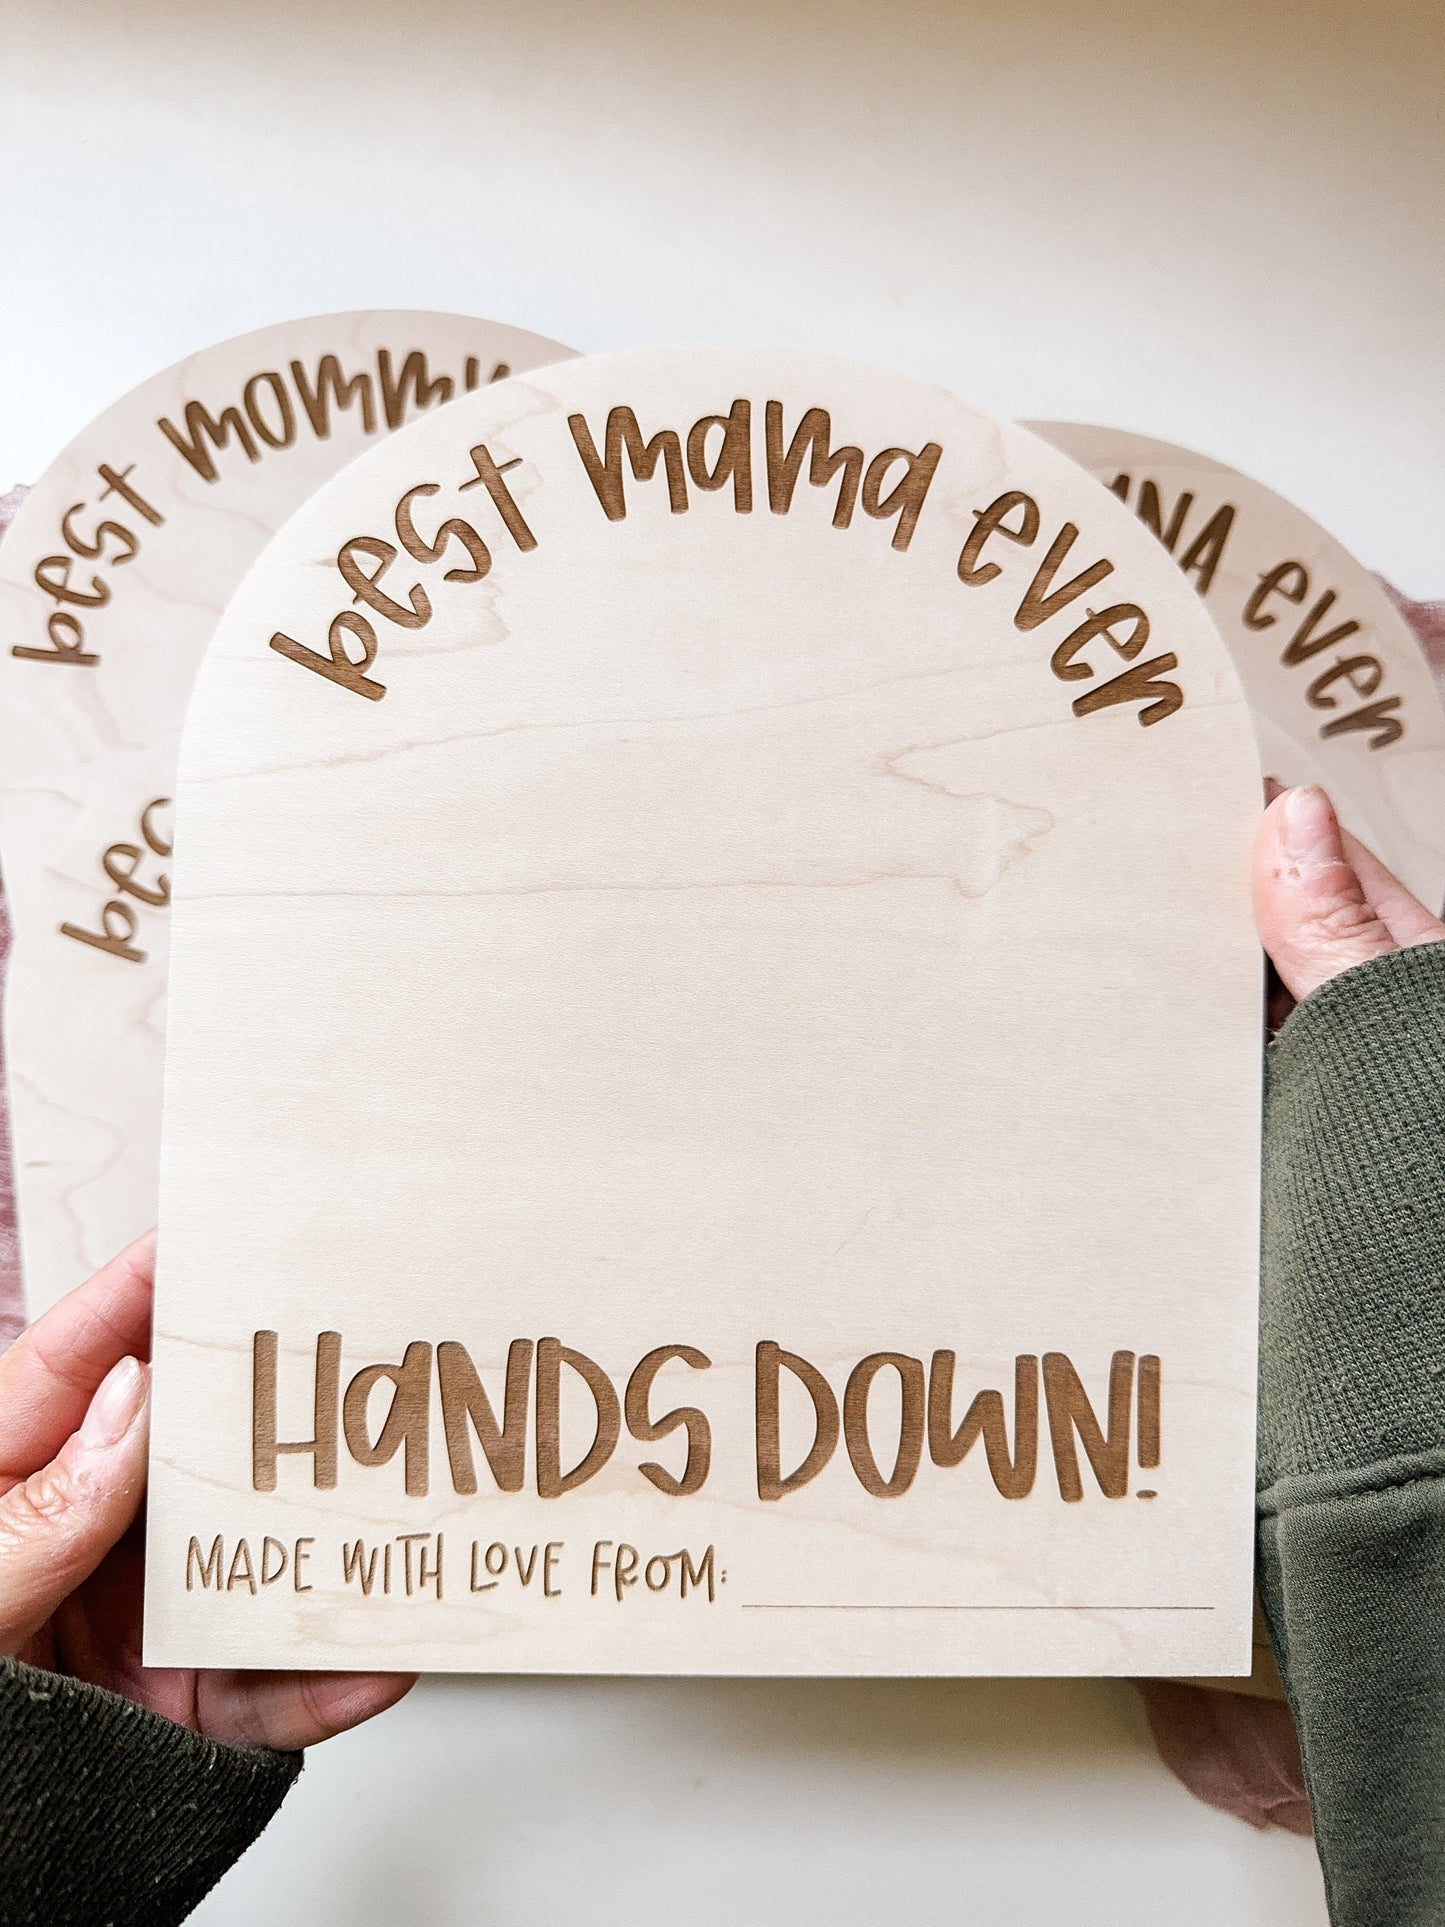 best mommy
best mama ever
ever
HaNDS DOWN!
MADE WITH LOVE FROM: